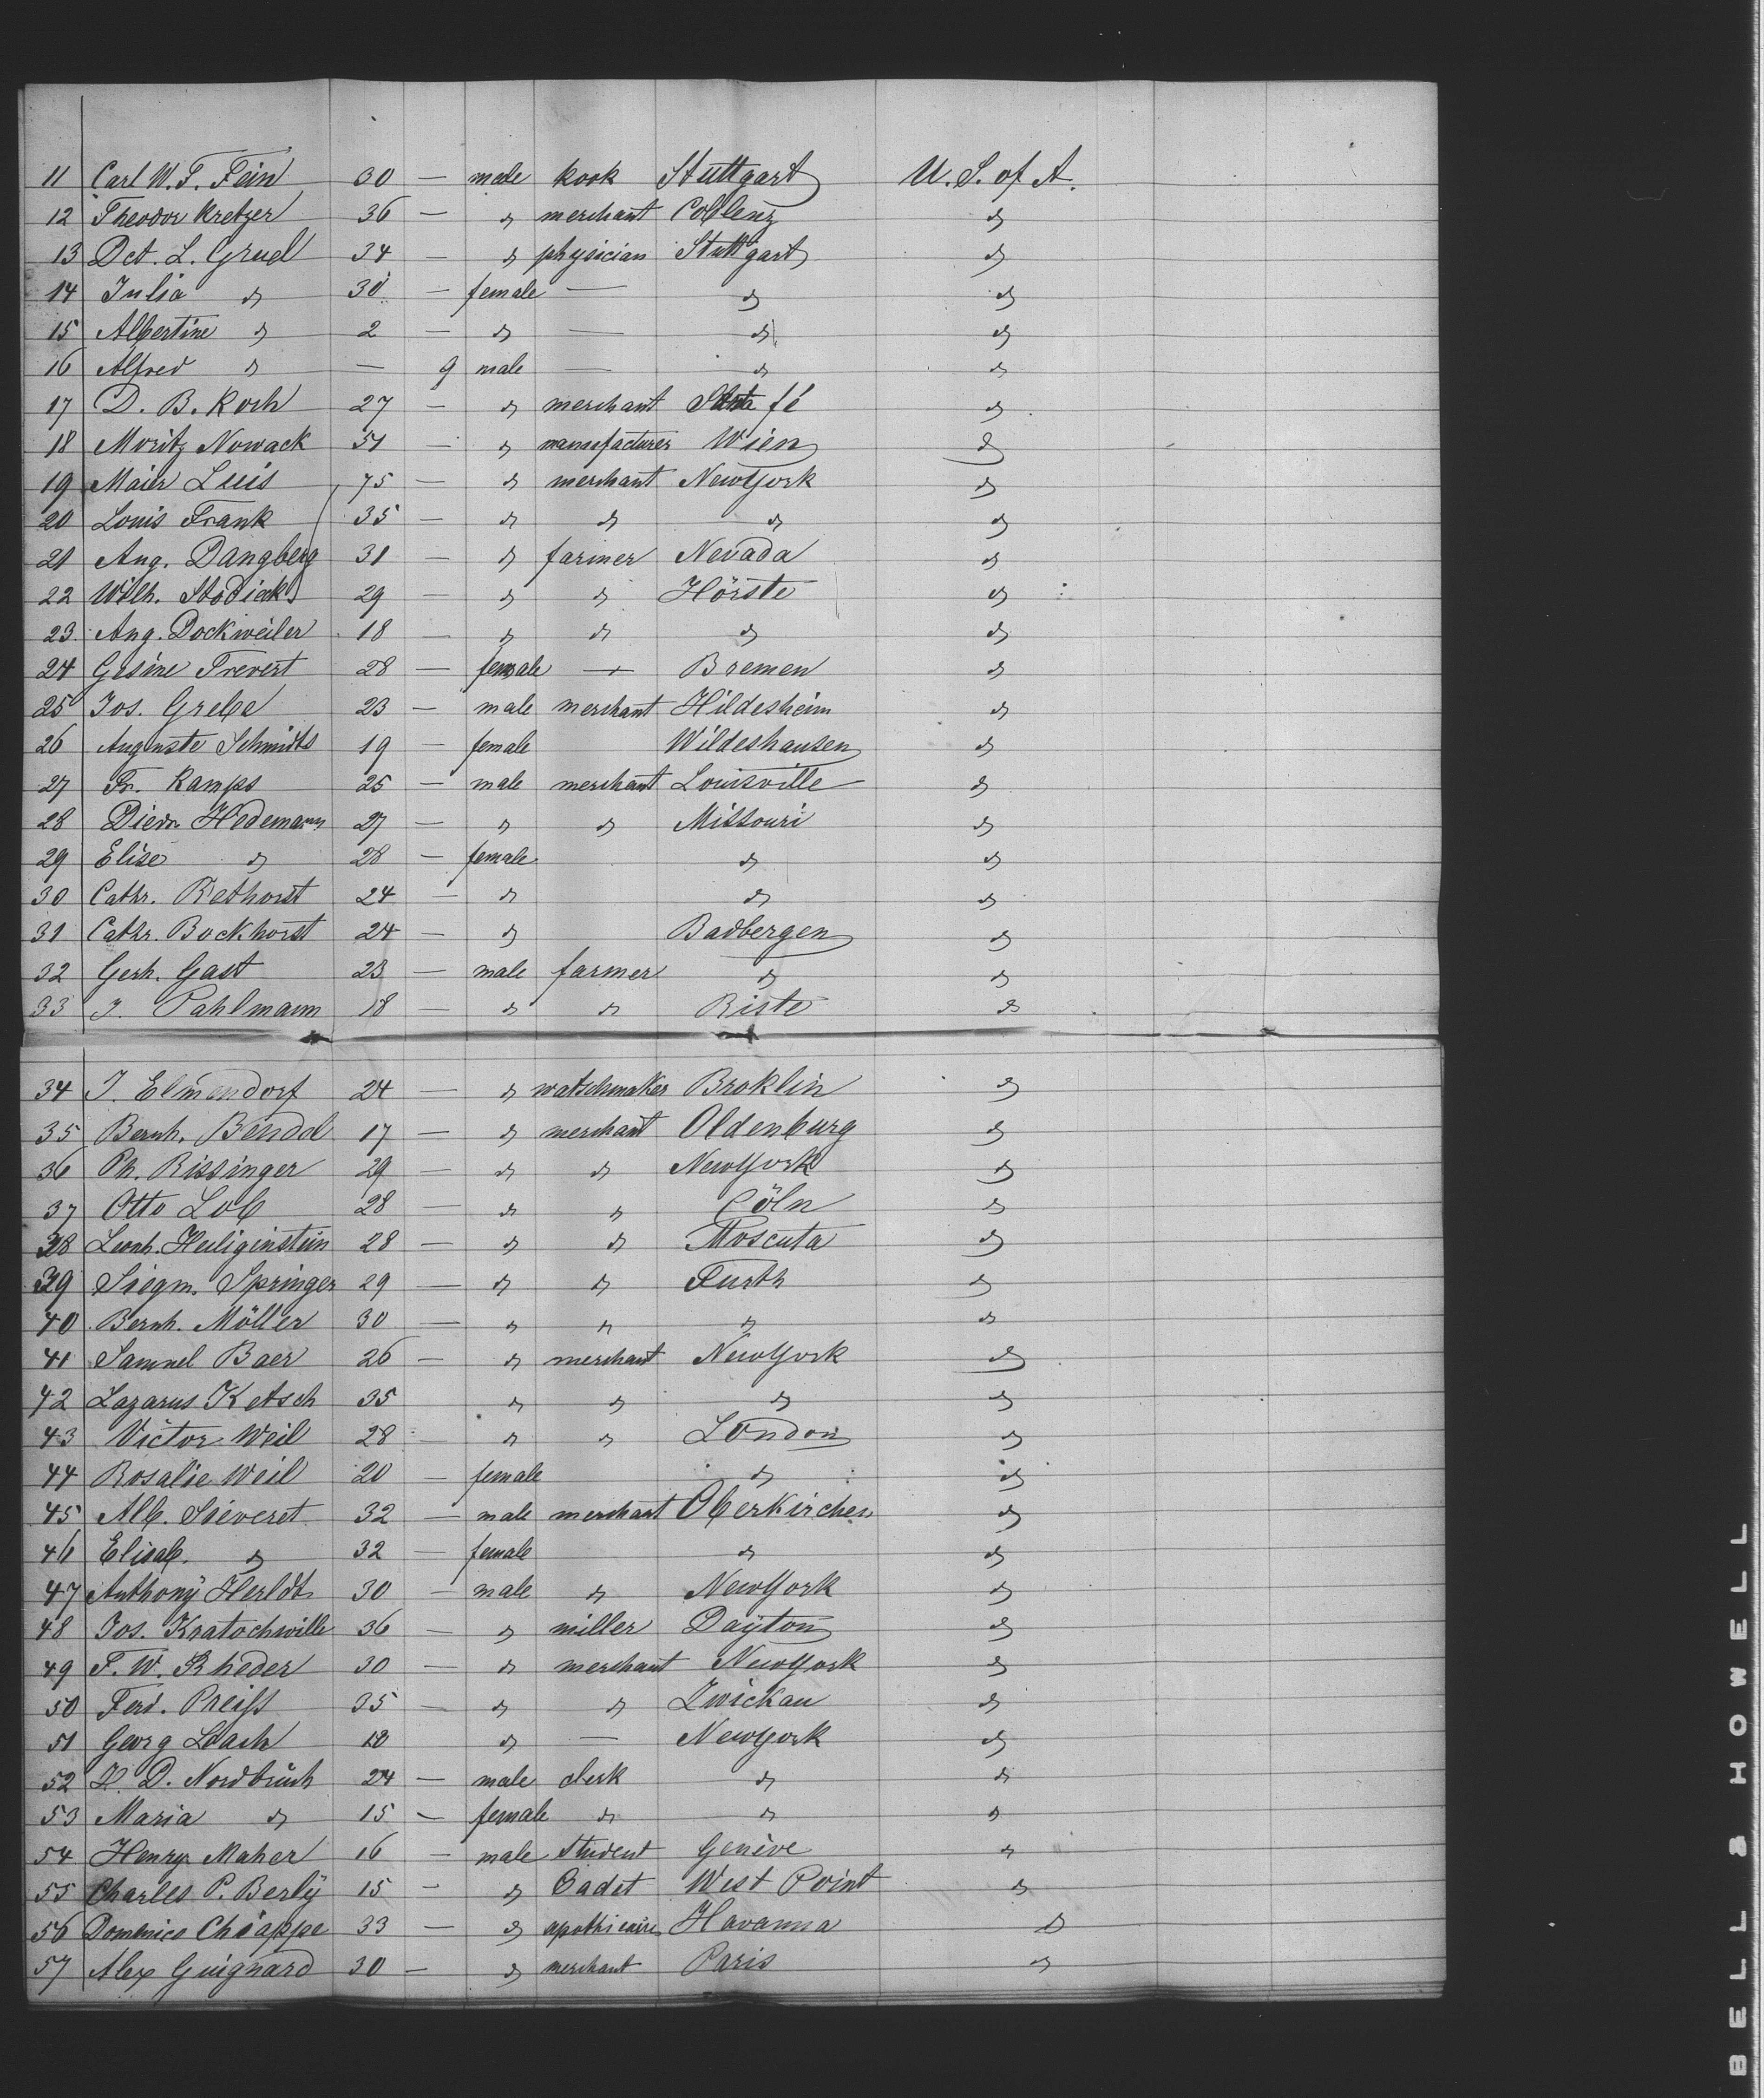 11 Carl W. F. Fein 30 — male kook Stuttgart U. S. of A.
12 Theodor Kretzer 36 — " merchant Coblenz "
13 Dct. L. Gruel 34 — " physician Stuttgart "
14 Julia " 30 — female — " "
15 Albertine " 2 — " — " "
16 Alfred " — 9 male — " "
17 D. B. Koch 27 — " merchant Santa fé "
18 Moritz Nowack 51 — " manufacturer Wien "
19 Maier Luis 75 — " merchant NewYork "
20 Louis Frank 35 — " " " "
21 Aug. Dangberg 31 — " farmer Nevada "
22 Wilh. Stodiek 29 — " " Hörste "
23 Aug. Dockweiler 18 — " " " "
24 Gesine Frevert 28 — female — Bremen "
25 Jos. Grebe 23 — male merchant Hildesheim "
26 Auguste Schmidts 19 — female Wildeshausen "
27 Fr. Kamps 25 — male merchant Louisville "
28 Diedr. Hedemann 27 — " " Missouri "
29 Elise " 28 — female " "
30 Cathr. Rethorst 24 — " " "
31 Cathr. Bockhorst 24 — " Badbergen "
32 Gerh. Gast 23 — male farmer " "
33 J. Pahlmann 18 — " " Riste "
34 J. Elmendorf 24 — " watschmaker Broklin "
35 Bernh. Bendel 17 — " merchant Oldenburg "
36 Ph. Rissinger 29 — " " NewYork "
37 Otto Lob 28 — " " Cöln "
38 Leonh. Heiliginstein 28 — " " Moscuta "
39 Siegm. Springer 29 — " " Furth "
40 Bernh. Möller 30 — " " " "
41 Samuel Baer 26 — " merchant NewYork "
42 Lazarus Ketsch 35 " " " "
43 Victor Weil 28 — " " London "
44 Rosalie Weil 20 — female " "
45 Alb. Sieveret 32 — male merchant Oberkirchen "
46 Elisab. " 32 — female " "
47 Anthony Herldt 30 — male " NewYork "
48 Jos. Kratochwille 36 — " miller Dayton "
49 F. W. Rheder 30 — " merchant NewYork "
50 Ferd. Preiss 35 — " " Zwickau "
51 Georg Loach 18 " — NewYork "
52 H. D. Nordbruch 24 — male clerk " "
53 Maria " 15 — female " " "
54 Henry Maher 16 — male student Genève "
55 Charles P. Berly 15 — " Cadet West Point "
56 Domenico Chiappe 33 — " apothicaire Havanna "
57 Alex Guignard 30 — " merchant Paris "
BELL & HOWELL